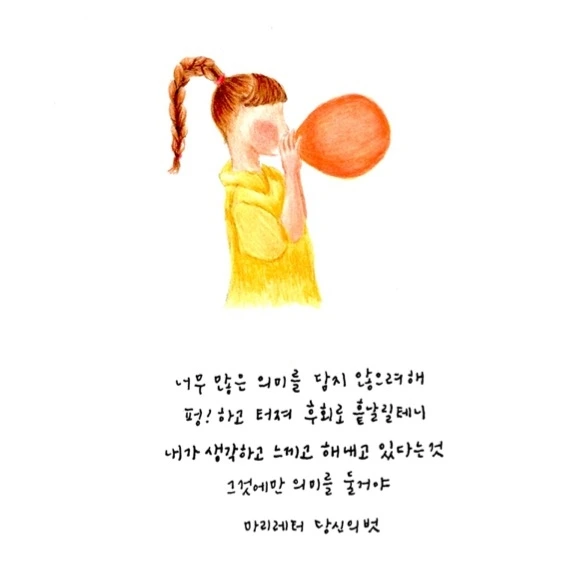 너무 많은 의미를 담지 않으려해
펑! 하고 터져 후회로 흩날릴테니
내가 생각하고 느끼고 해내고 있다는것
그것에만 의미를 둘거야
마리레터 당신의벗